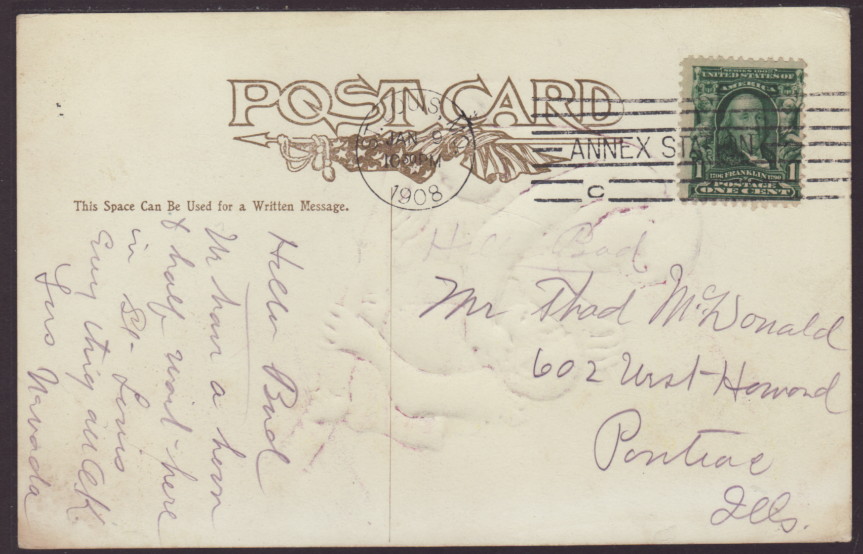 POST CARD
ST. LOUIS, MO.
JAN 8
10 30 PM
1908
ANNEX STATION
C
UNITED STATES OF
AMERICA
1 1
1706 FRANKLIN 1790
POSTAGE
ONE CENT
This Space Can Be Used for a Written Message.
Hello Bud
Hello Bud
We have a hour
& half wait here
in St. Louis
Evry thing all O.K.
Nevada
Mr Thad McDonald
602 West Howard
Pontiac
Ills.